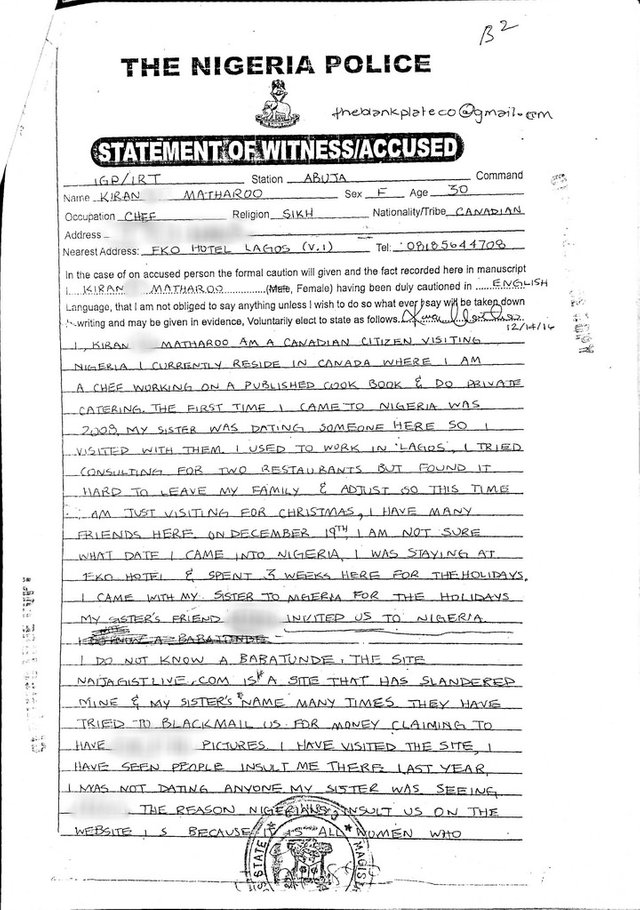 B2
THE NIGERIA POLICE
theblankplateco@gmail.com
STATEMENT OF WITNESS/ACCUSED
IGP/IRT Station ABUJA Command
Name KIRAN MATHAROO Sex F Age 30
Occupation CHEF Religion SIKH Nationality/Tribe CANADIAN
Address
Nearest Address: EKO HOTEL LAGOS (V.I) Tel: 08185644708
In the case of on accused person the formal caution will given and the fact recorded here in manuscript
I KIRAN MATHAROO (Male, Female) having been duly cautioned in ENGLISH
Language, that I am not obliged to say anything unless I wish to do so what ever I say will be taken down
writing and may be given in evidence, Voluntarily elect to state as follows.
12/14/16
I, KIRAN MATHAROO AM A CANADIAN CITIZEN VISITING
NIGERIA I CURRENTLY RESIDE IN CANADA WHERE I AM
A CHEF WORKING ON A PUBLISHED COOK BOOK & DO PRIVATE
CATERING. THE FIRST TIME I CAME TO NIGERIA WAS
2008, MY SISTER WAS DATING SOMEONE HERE SO I
VISITED WITH THEM. I USED TO WORK IN LAGOS, I TRIED
CONSULTING FOR TWO RESTAURANTS BUT FOUND IT
HARD TO LEAVE MY FAMILY & ADJUST SO THIS TIME
I AM JUST VISITING FOR CHRISTMAS, I HAVE MANY
FRIENDS HERE. ON DECEMBER 19TH, I AM NOT SURE
WHAT DATE I CAME INTO NIGERIA, I WAS STAYING AT
EKO HOTEL & SPENT 3 WEEKS HERE FOR THE HOLIDAYS.
I CAME WITH MY SISTER TO NIGERIA FOR THE HOLIDAYS
MY SISTER'S FRIEND INVITED US TO NIGERIA.
I DO KNOW A BABATUNDE.
I DO NOT KNOW A BABATUNDE. THE SITE
NAIJAGISTLIVE.COM IS A SITE THAT HAS SLANDERED
MINE & MY SISTER'S NAME MANY TIMES. THEY HAVE
TRIED TO BLACKMAIL US FOR MONEY CLAIMING TO
HAVE PICTURES. I HAVE VISITED THE SITE, I
HAVE SEEN PEOPLE INSULT ME THERE LAST YEAR,
I WAS NOT DATING ANYONE MY SISTER WAS SEEING
THE REASON NIGERIANS INSULT US ON THE
WEBSITE IS BECAUSE IT IS ALL WOMEN WHO
STATE
MAGIS